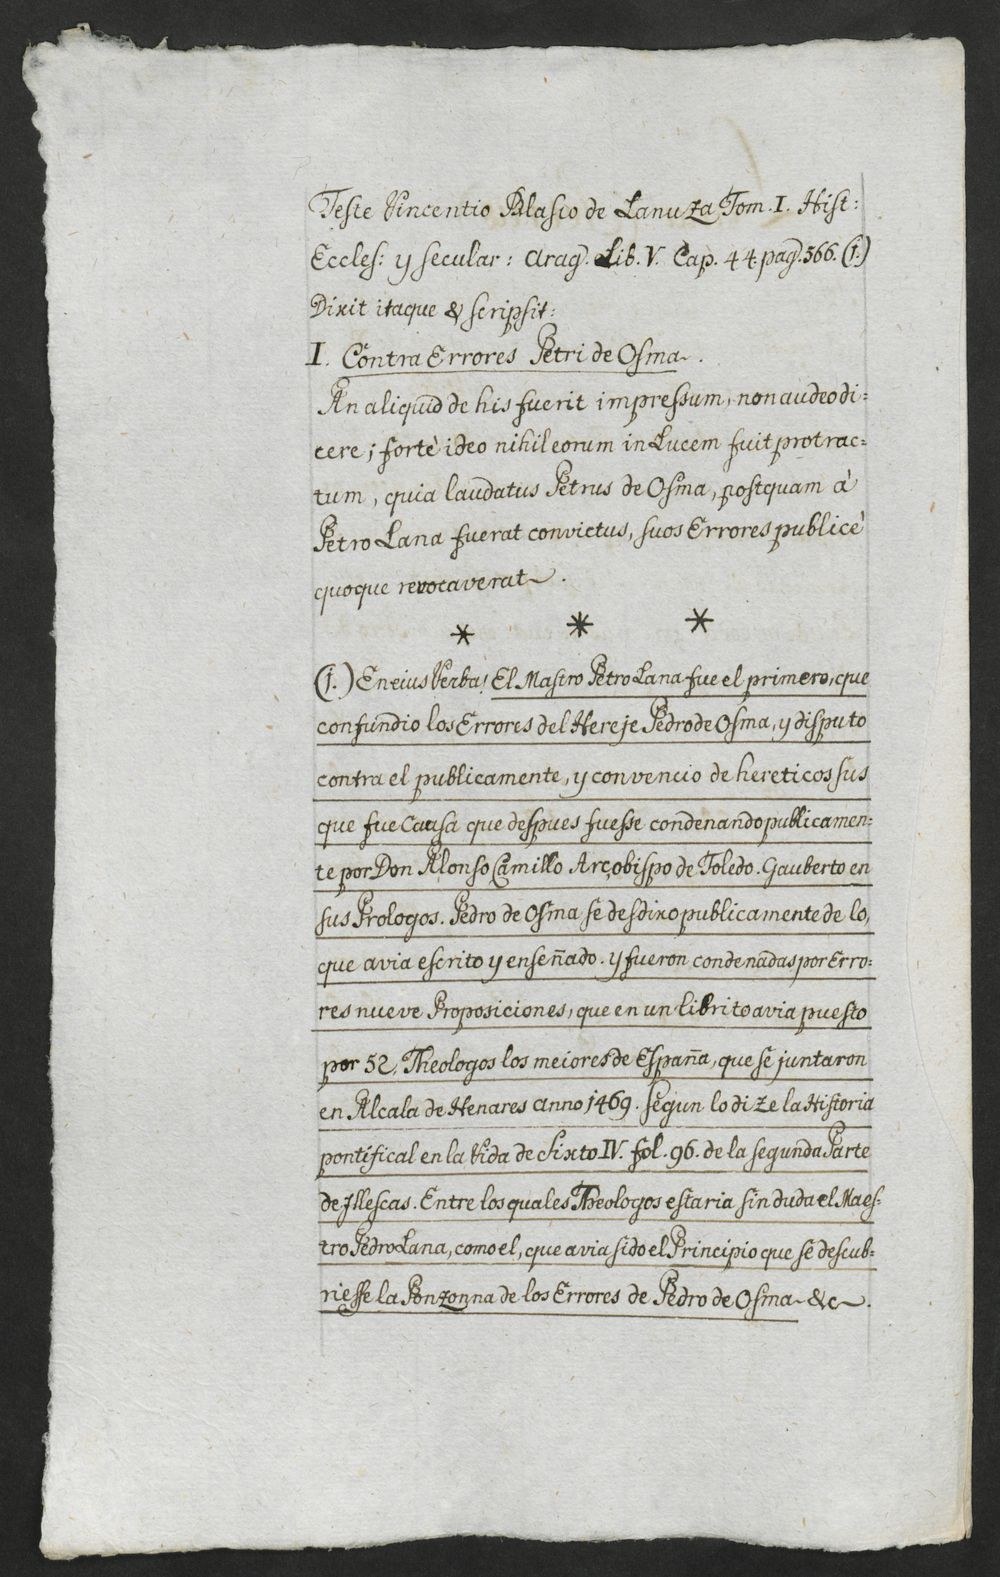 Teste Vincentio Blasio de Lanuza Tom. I. Hist:
Eccles: y secular: Arag. Lib. V. Cap. 44 pag. 566. (1.)
Dixit itaque & scripsit:
I. Contra Errores Petri de Osma.
An aliquid de his fuerit impressum, non audeo di=
cere; fortè ideo nihil eorum in Lucem fuit protrac=
tum, quia laudatus Petrus de Osma, postquam à
Petro Lana fuerat convictus, suos Errores publicè
quoque revocaverat.
* * *
(1.) En eius Verba! El Mastro Petro Lana fue el primero, que
confundio los Errores del Hereje Pedro de Osma, y disputo
contra el publicamente, y convencio de hereticos sus
que fue Causa que despues fuesse condenando publicamen=
te por Don Alonso Camillo Arçobispo de Toledo. Gauberto en
sus Prologos. Pedro de Osma se desdixo publicamente de lo,
que avia escrito y enseñado. y fueron condenadas por Erro=
res nueve Proposiciones, que en un librito avia puesto
por 52, Theologos los meiores de España, que se juntaron
en Alcala de Henares anno 1469. segun lo dize la Historia
pontifical en la Vida de Sixto IV. fol. 96. de la segunda Parte
de Jllescas. Entre los quales Theologos estaria sin duda el Maes=
tro Pedro Lana, como el, que avia sido el Principio que se descub=
riesse la Ponzonna de los Errores de Pedro de Osma &c.